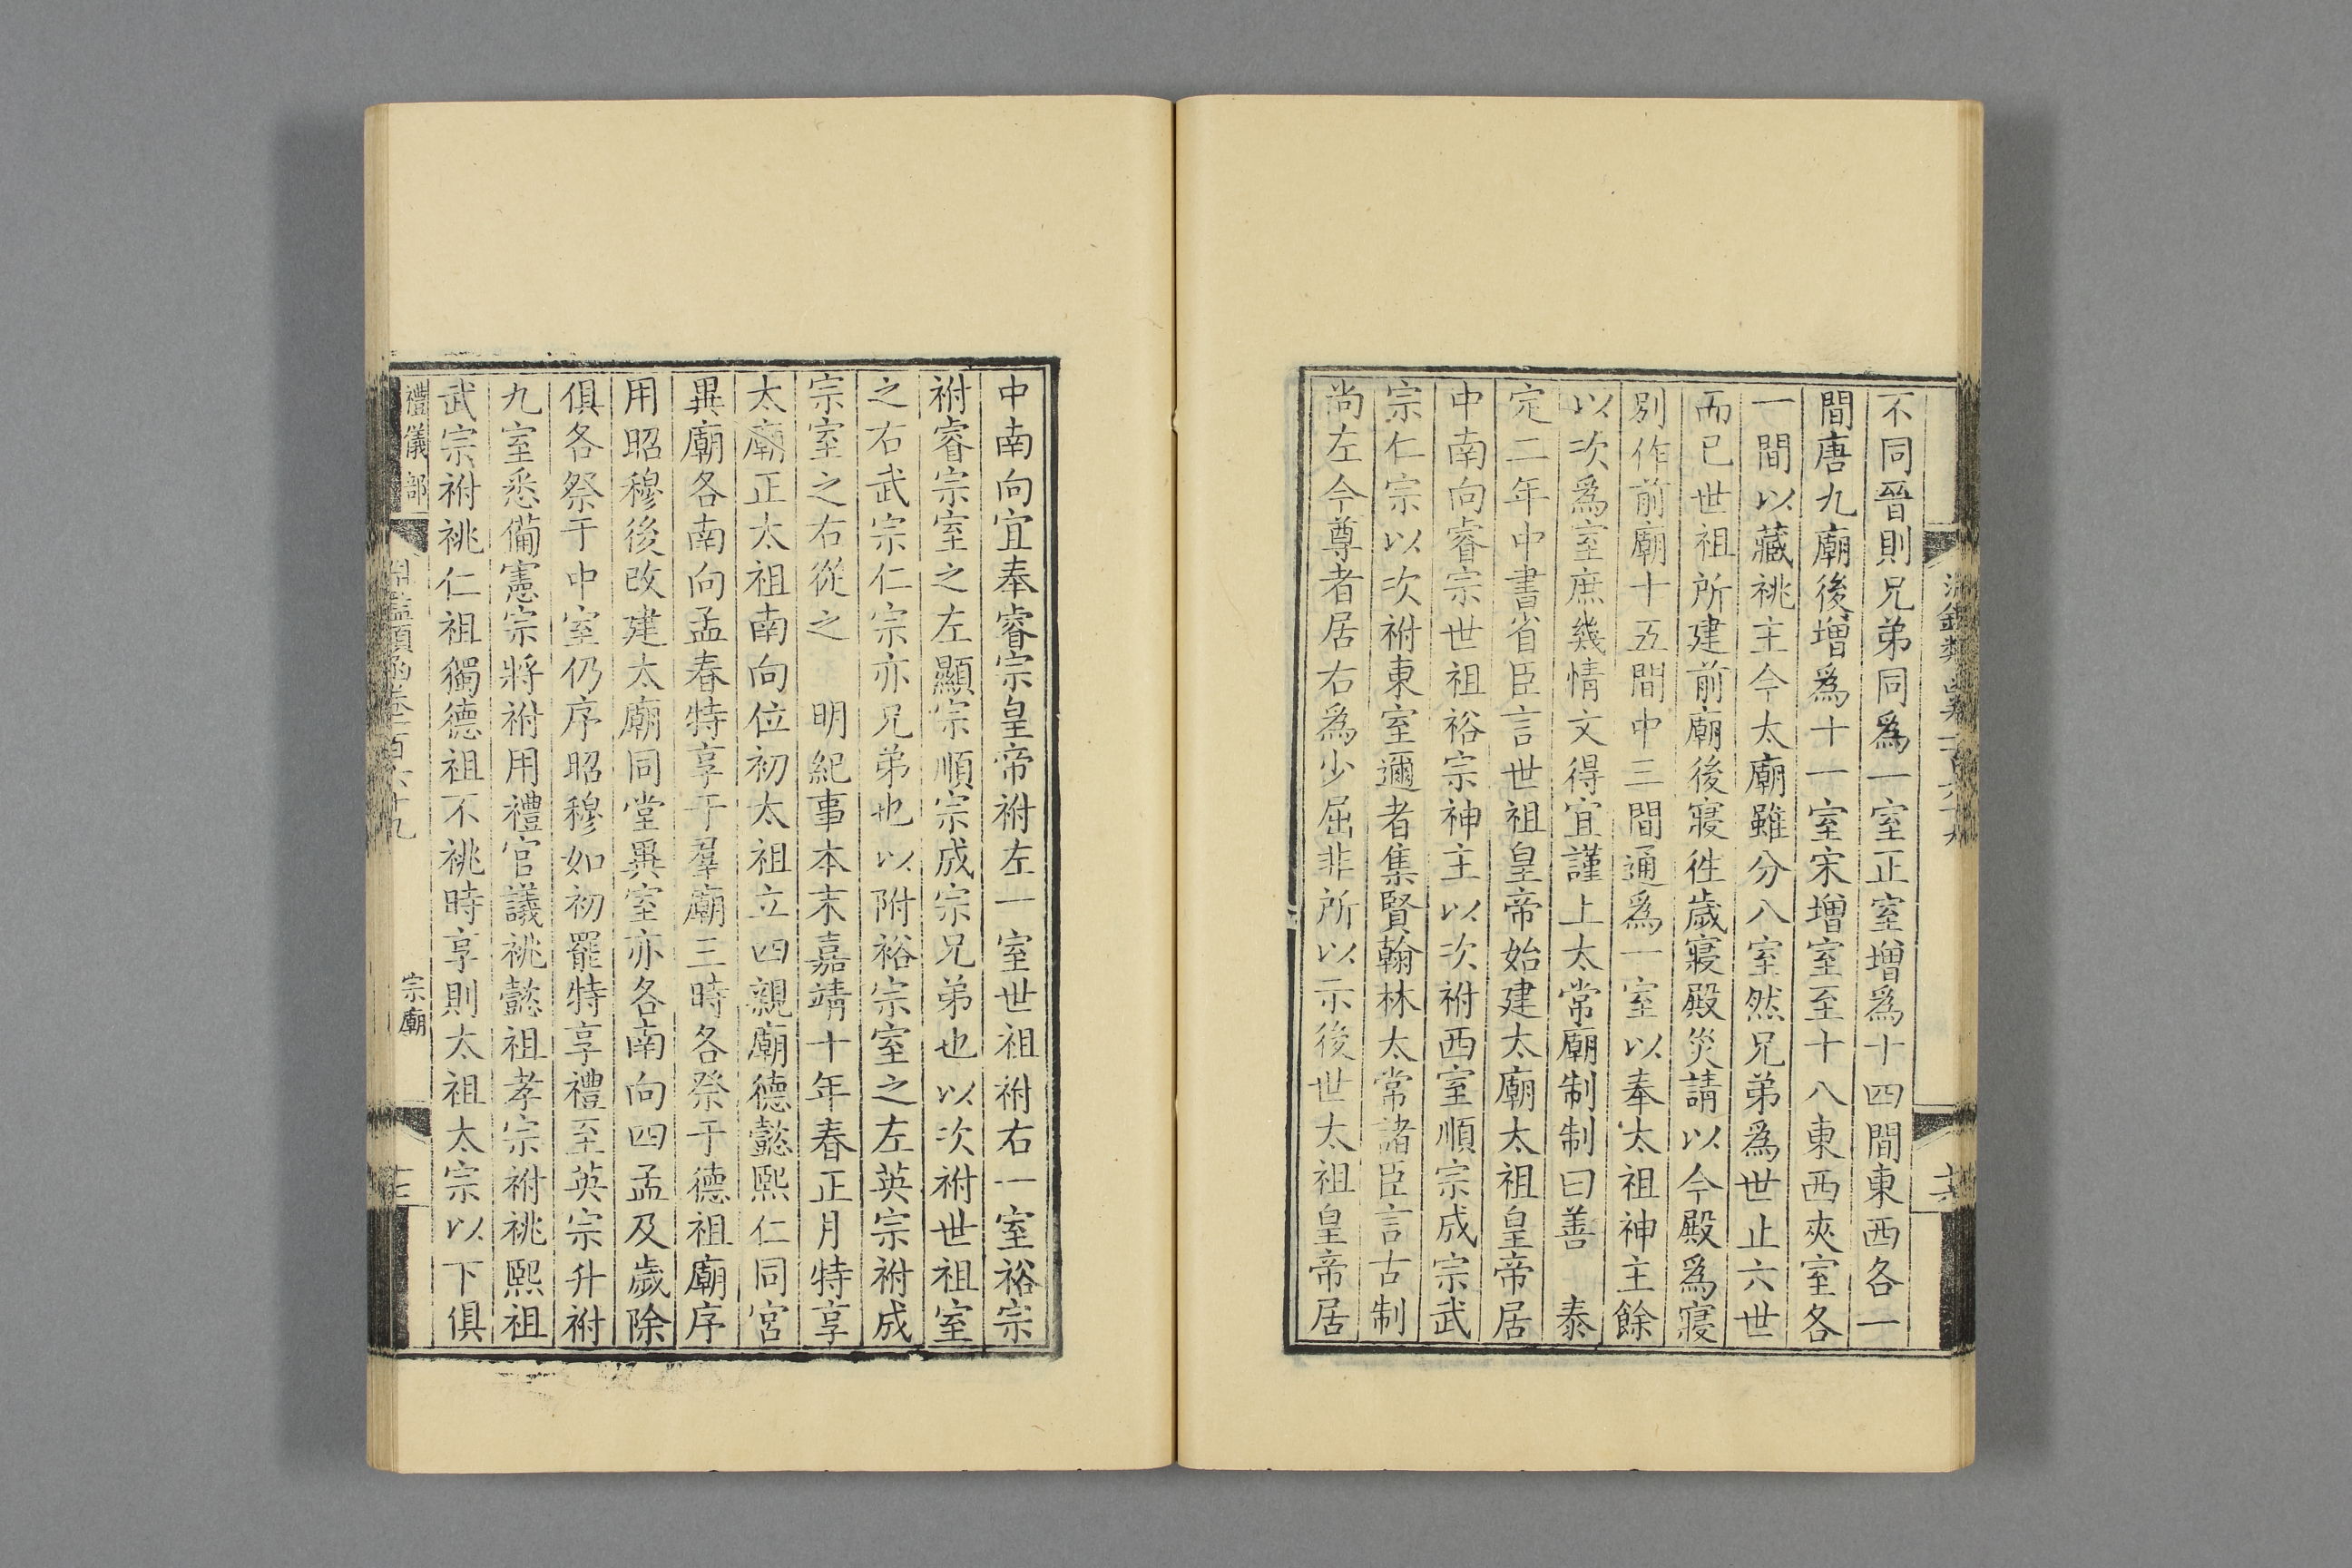 不同晉則兄弟同爲一室正室增爲十四間東西各一
間唐九廟後增爲十一室宋增室至十八東西夾室各
一間以藏祧主今太廟雖分八室然兄弟爲世止六世
而已世祖所建前廟後寢徃歲寢殿災請以今殿爲寢
別作前廟十五間中三間通爲一室以奉太祖神主餘
以次爲室庶幾情文得宜謹上太常廟制制曰善　泰
定二年中書省臣言世祖皇帝始建太廟太祖皇帝居
中南向睿宗世祖裕宗神主以次祔西室順宗成宗武
宗仁宗以次祔東室邇者集賢翰林太常諸臣言古制
尚左今尊者居右爲少屈非所以示後世太祖皇帝居
中南向宜奉睿宗皇帝祔左一室世祖祔右一室裕宗
祔睿宗室之左顯宗順宗成宗兄弟也以次祔世祖室
之右武宗仁宗亦兄弟也以附裕宗室之左英宗祔成
宗室之右從之　明紀事本末嘉靖十年春正月特享
太廟正太祖南向位初太祖立四親廟德懿熙仁同宮
異廟各南向孟春特享于羣廟三時各祭于德祖廟序
用昭穆後改建太廟同堂異室亦各南向四孟及歲除
俱各祭于中室仍序昭穆如初罷特享禮至英宗升祔
九室悉備憲宗將祔用禮官議祧懿祖孝宗祔祧熙祖
武宗祔祧仁祖獨德祖不祧時享則太祖太宗以下俱
禮儀部
淵鑑類函卷一百六十九
宗廟